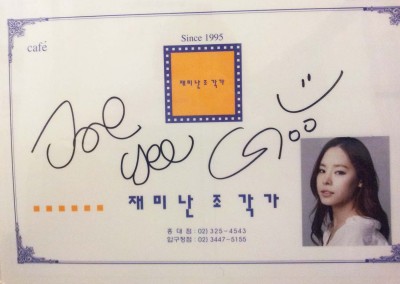 Since 1995
café
재미난 조각가
재미난 조각가
홍대점 : 02) 325-4543
압구정점 : 02) 3447-5156